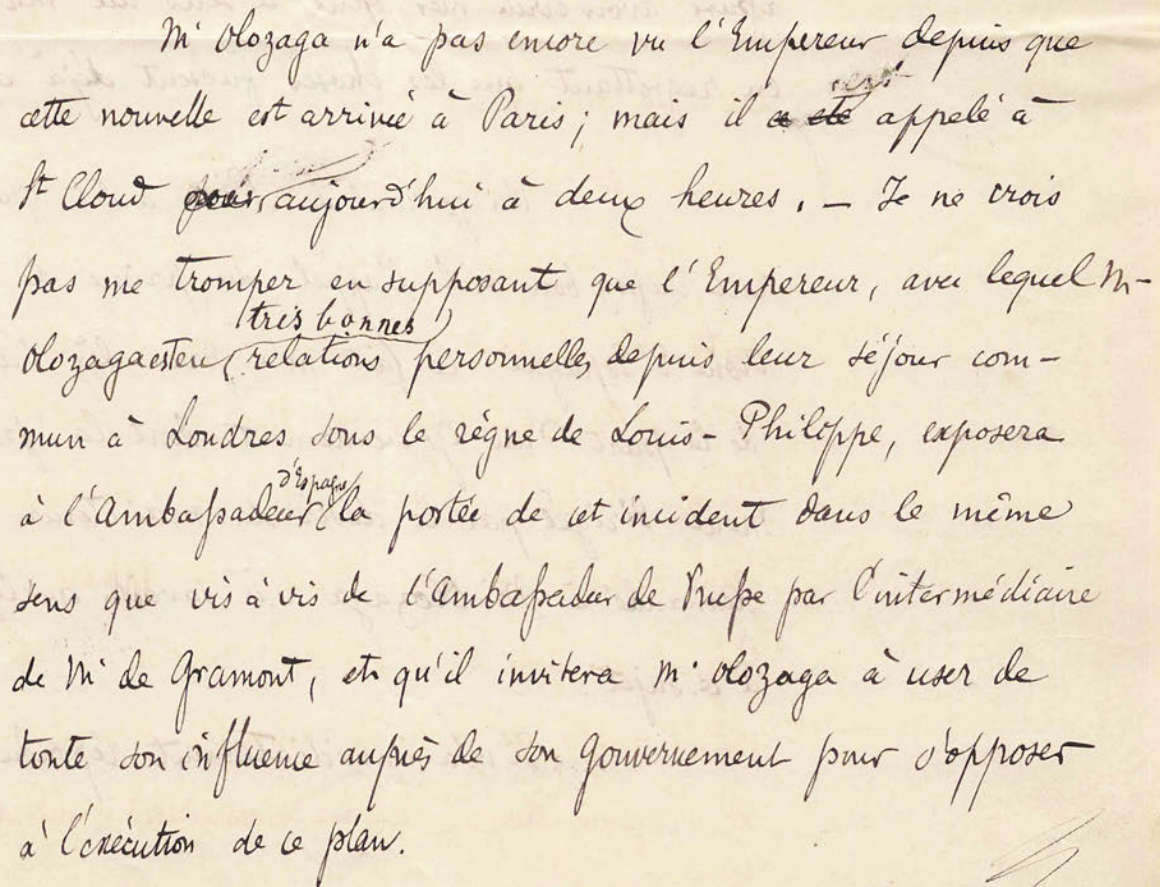 Mr Olozaga n'a pas encore vu l'Empereur depuis que
sera
cette nouvelle est arrivée à Paris; mais il a été appelé à
St Cloud pour aujourd'hui à deux heures. – Je ne crois
pas me tromper en supposant que l'Empereur, avec lequel M-
très bonnes
Olozaga est en relations personnelles depuis leur séjour com-
mun à Londres sous le règne de Louis-Philippe, exposera
d'Espagne
à l'Ambassadeur la portée de cet incident dans le même
sens que vis à vis de l'Ambassadeur de Prusse par l'intermédiaire
de Mr de Gramont, et qu'il invitera Mr Olozaga à user de
toute son influence auprès de son Gouvernement pour s'opposer
à l'exécution de ce plan.